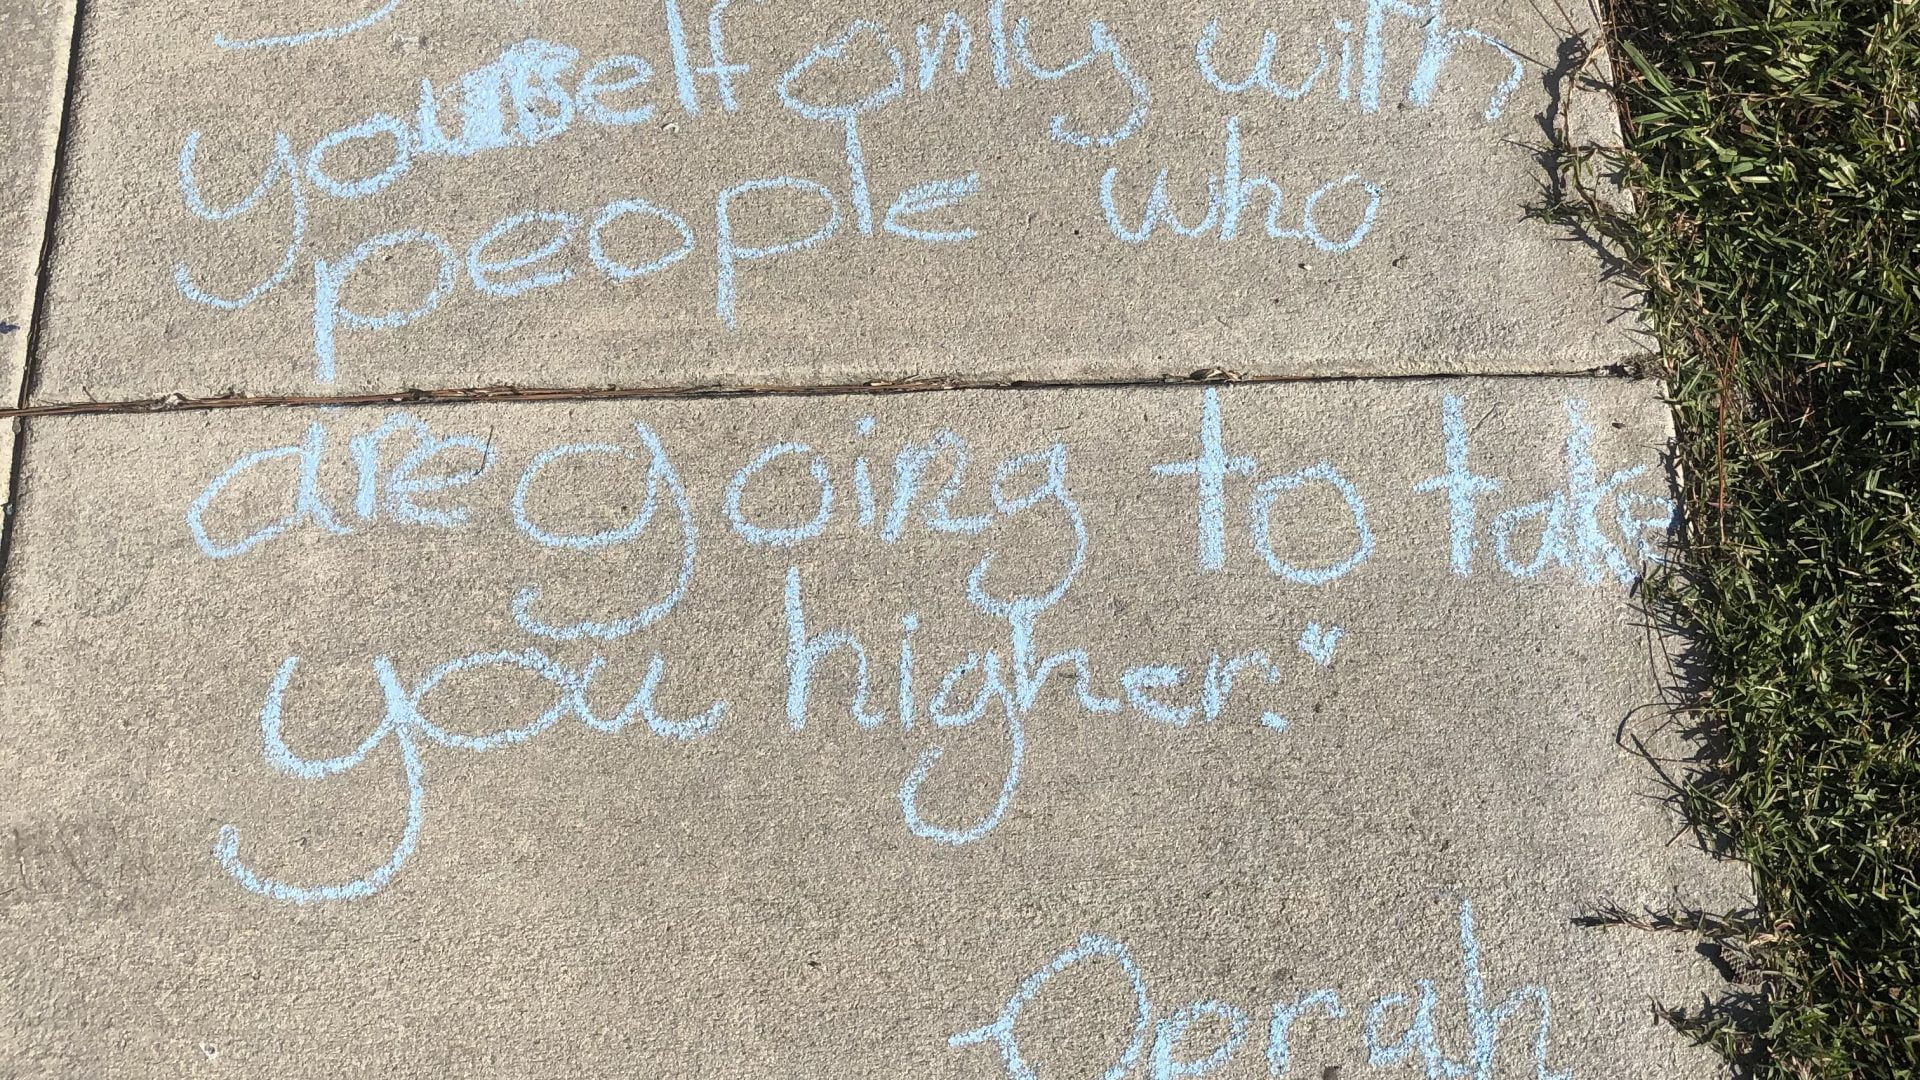 yourself only with
people who
are going to take
you higher."
Oprah